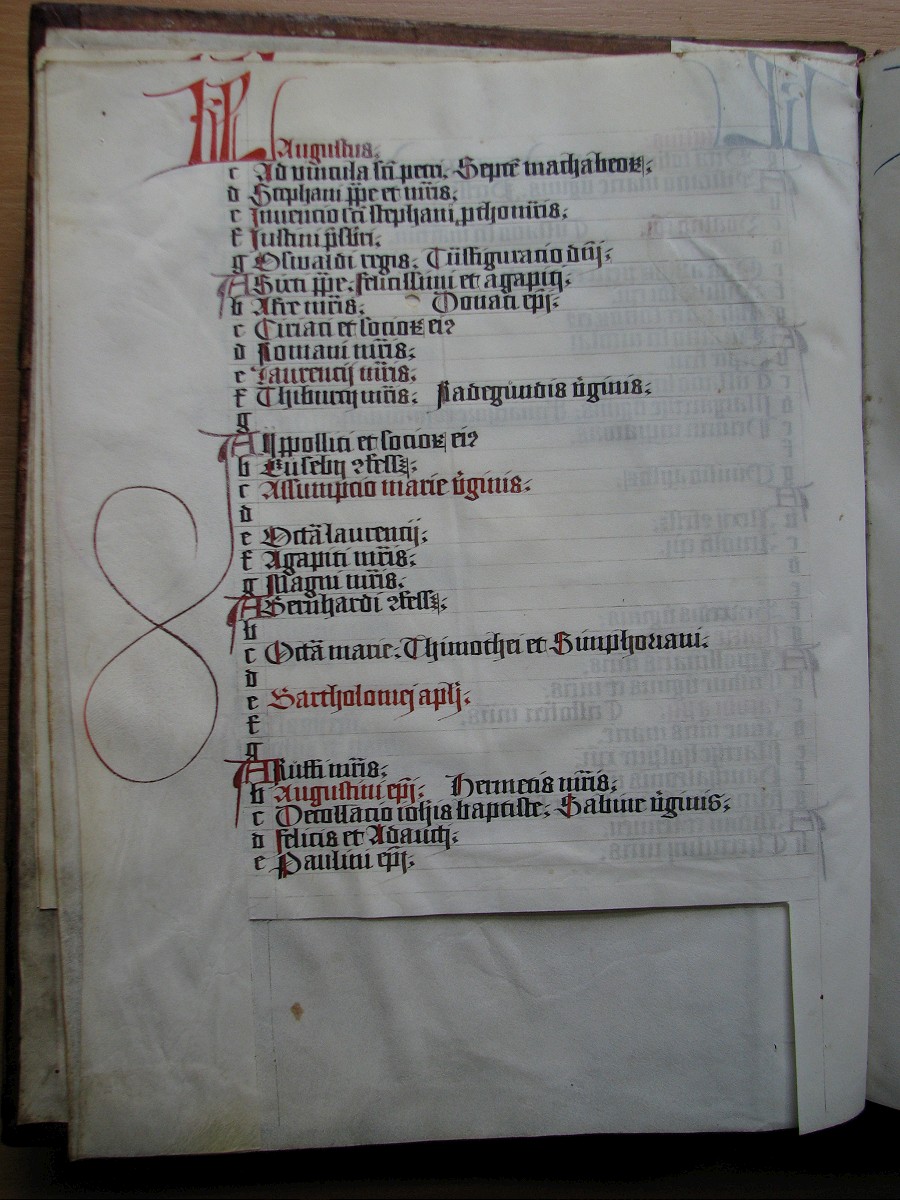 KL Augustus.
c Ad vincula sci petri. Septē machabeoꝝ.
d Stephani ꝑpe et mr̄is.
e Invencio sci stephani ꝓthomr̄is.
f Justini p̄sbri.
g Oswaldi regis. Tͣnsfiguratio dn̄j.
A Sixti ꝑpe. felicissimi et agapiti.
b Afre mr̄is. Donati ep̄j.
c Ciriaci et socioꝝ eiꝰ
d Romani mr̄is.
e Laurencij mr̄is.
f Thiburcij mr̄is. Radegundis v̄ginis.
g
A Yppoliti et socioꝝ eiꝰ
b Eusebij ꝯfessꝭ.
c Assumpcio marie v̄ginis.
d
e Octā laurencij.
f Agapiti mr̄is.
g Magni mr̄is.
A Bernhardi ꝯfessꝭ.
b
c Octā marie. Thimothei et Simphoriani.
d
e Bartholomej apl̄j.
f
g
A Ruffi mr̄is.
b Augustini ep̄j. Hermetis mr̄is.
c Decollacio ioh̄is baptiste. Sabine v̄ginis.
d felicis et Adaucti.
e Paulini ep̄j.